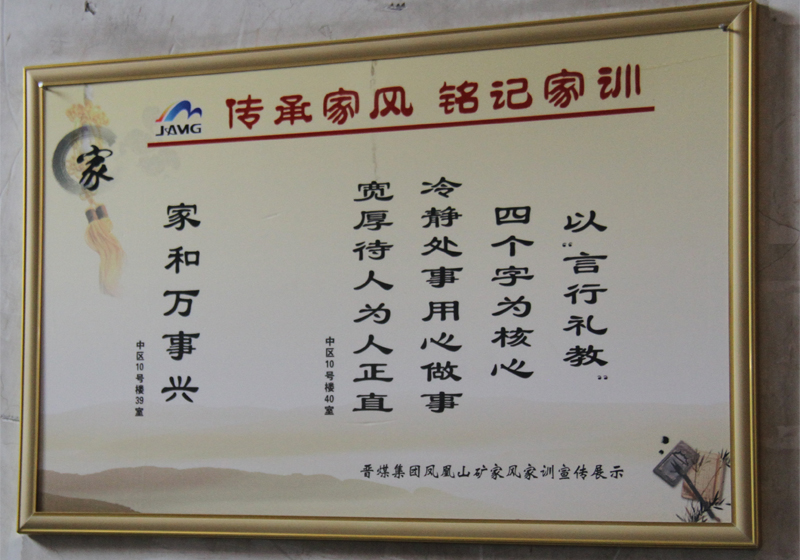 家
JAMG
传承家风 铭记家训
以“言行礼教”
四个字为核心
冷静处事用心做事
宽厚待人为人正直
中区10号楼40室
家和万事兴
中区10号楼39室
晋煤集团凤凰山矿家风家训宣传展示